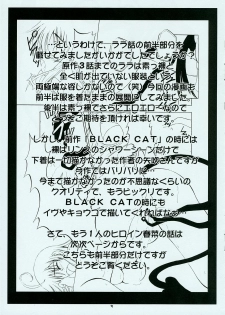 …というわけで、ララ話の前半部分を
載せてみましたがいかがでしたでしょうか？
原作3話までのララは素っ裸か
全く肌が出ていない服装という
両極端な姿しかないので（笑）今回の漫画も
前半は服を着たままの展開にしてみました。
後半は素っ裸でエロエロなので
どうぞご期待を頂ければ幸いです。
しかし前作「BLACK CAT」の時には
裸はリンスのシャワーシーンだけで
下着は一切描かなかった作者の矢吹さんですが
今作ではバリバリ
今まで描かなかったのが不思議なくらいの
クオリティで、もうビックリです。
BLACK CATの時にも
イヴやキョウコで描いてくれれば
さて、もう1人のヒロイン春菜の話は
次次ページからです。
こちらも前半部分だけですが
どうぞご覧ください。